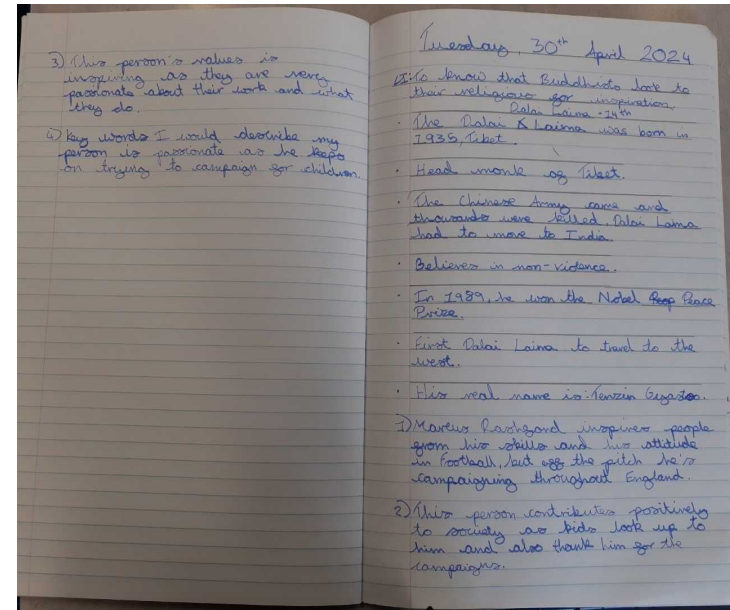 3) This person's values is
inspiring as they are very
passionate about their work and what
they do.
4) Key words I would describe my
person is passionate as he keeps
on trying to campaign for children.
Tuesday, 30th April 2024
LI: To know that Buddhists look to
their religious for inspiration.
Dalai Laima - 14th
· The Dalai Laima was born in
1935, Tibet.
· Head monk of Tibet.
· The Chinese Army came and
thousands were killed. Dalai Lama
had to move to India.
· Believes in non-violence.
· In 1989, he won the Nobel Peace
Prize.
· First Dalai Laima to travel to the
west.
· His real name is: Tenzin
1) Marcus Rashford inspires people
from his skills and his attitude
in Football, but off the pitch he's
campaigning throughout England.
2) This person contributes positively
to society as kids look up to
him and also thank him for the
campaigns.